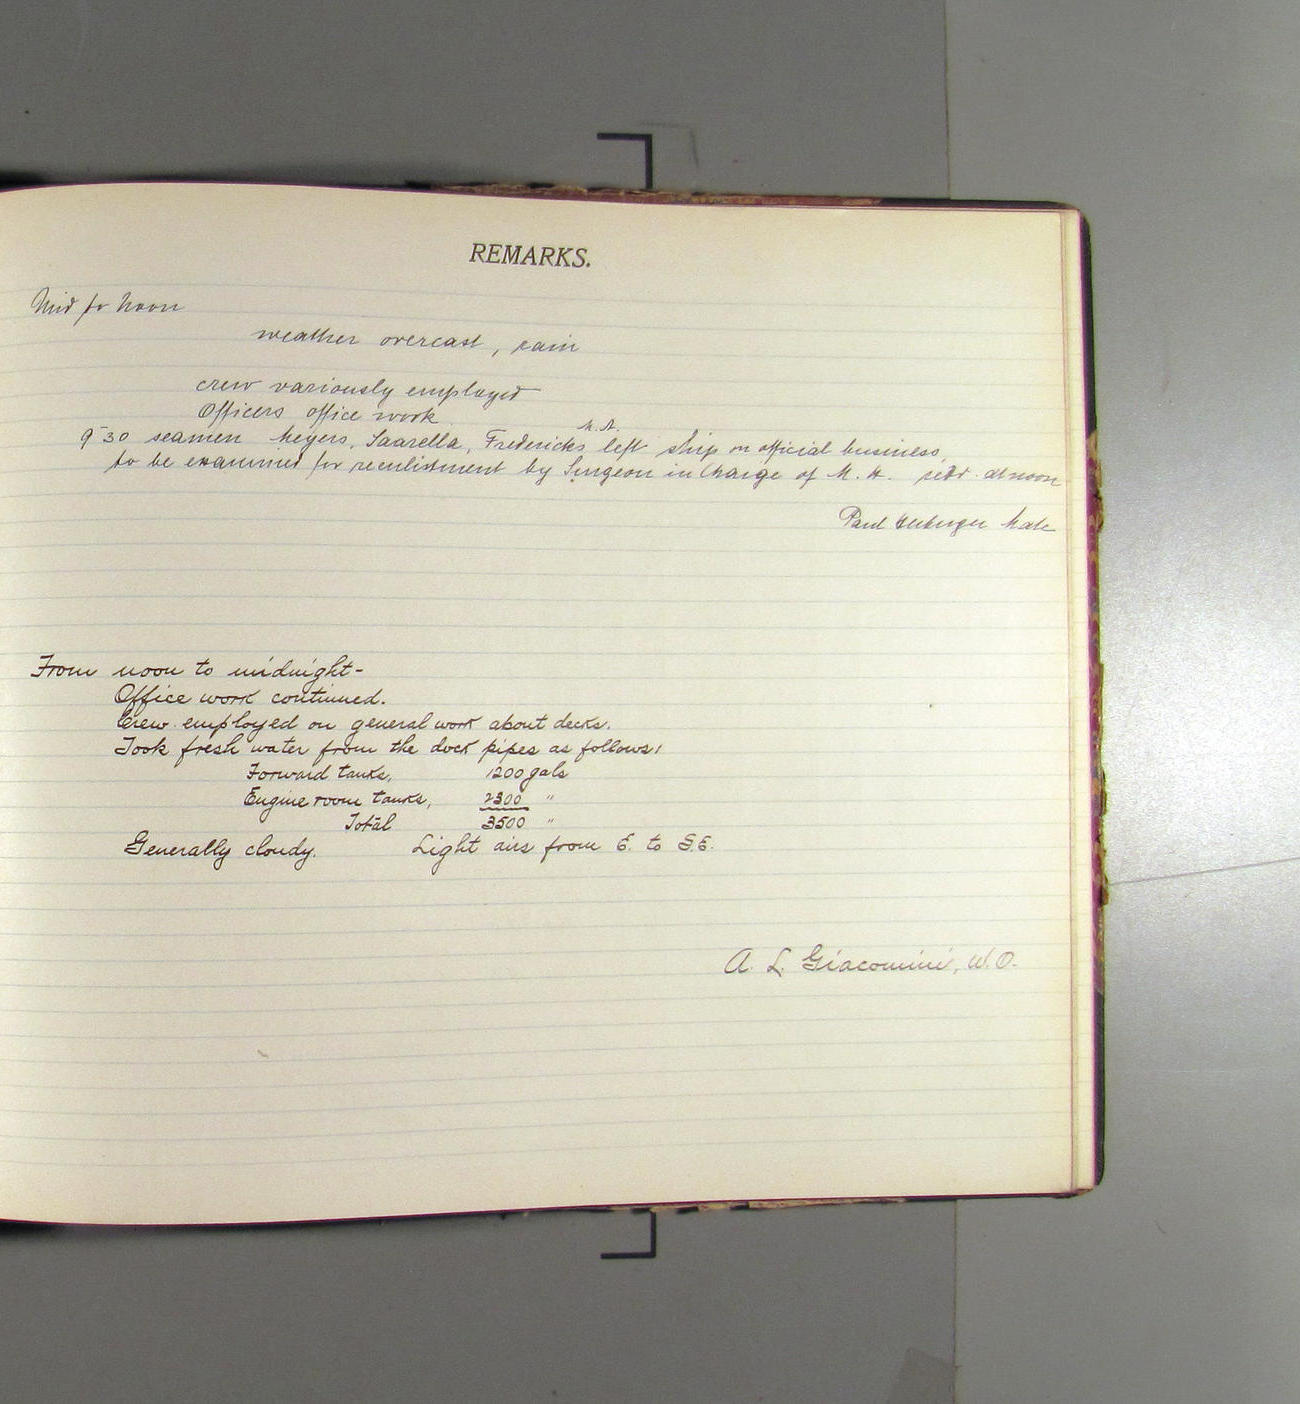 REMARKS.
Mid to Noon
weather overcast, rain
crew variously employed
Officers office work
M.A.
9-30 seamen Meyers, Saarella, Fredericks left ship on official business,
to be examined for reenlistment by Surgeon in Charge of M. H. retd. at noon
Paul Mate
From noon to midnight-
Office work continued.
Crew employed on general work about decks.
Took fresh water from the dock pipes as follows:
Forward tanks, 1200 gals
Engine room tanks, 2300 "
Total 3500 "
Generally cloudy. Light airs from E. to S.E.
A. L. Giacomini, W.O.